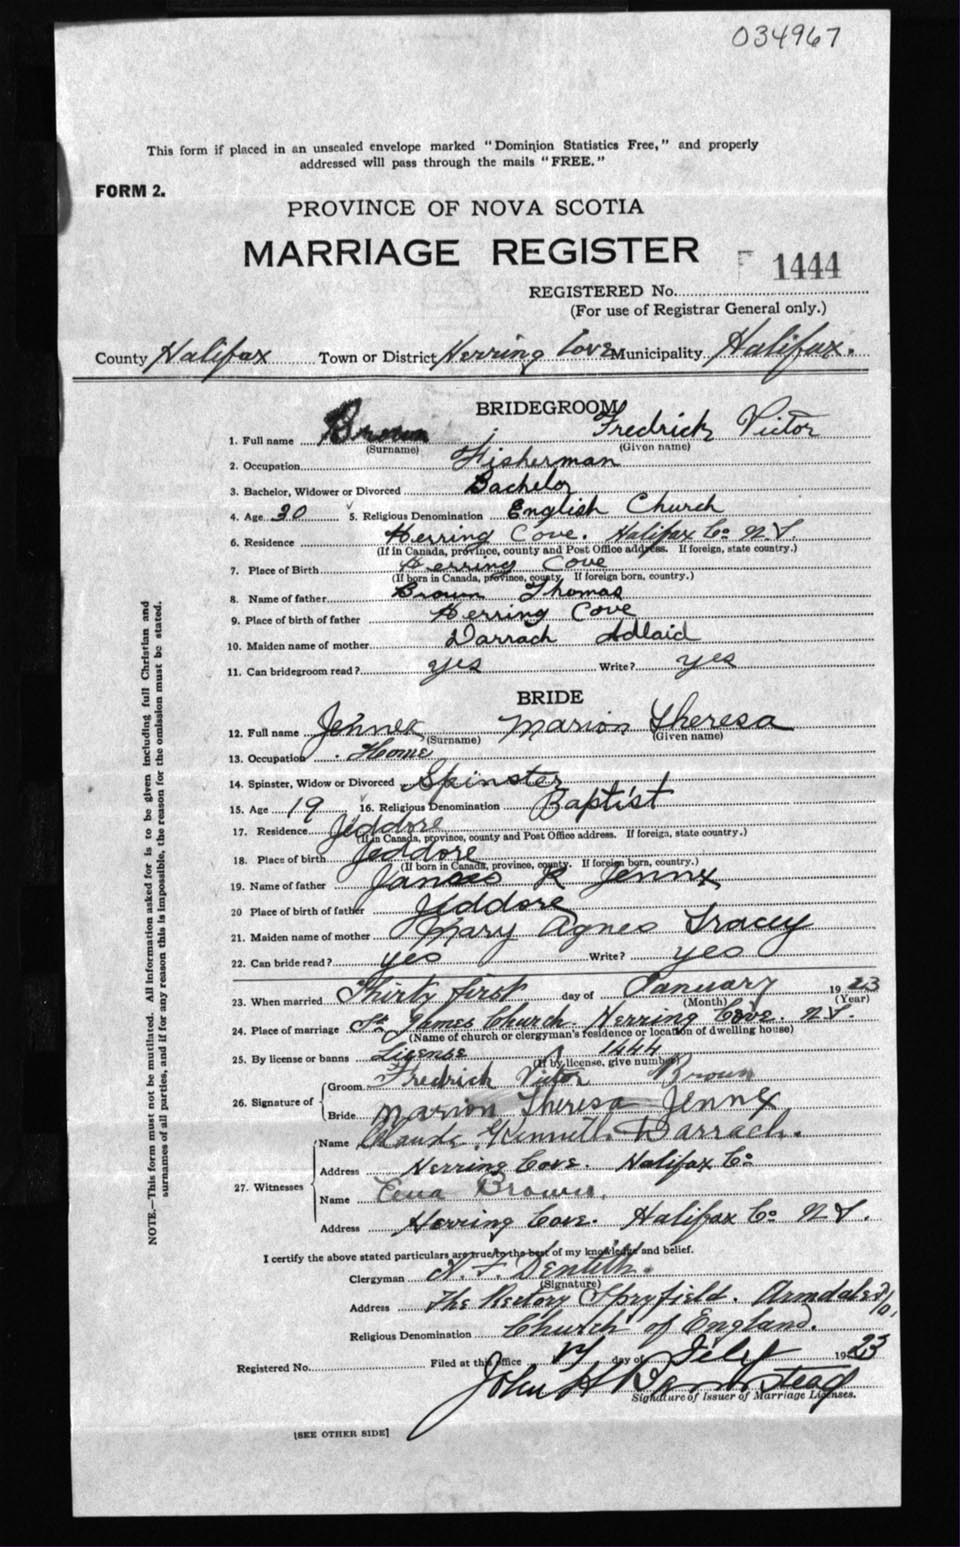 034967
This form if placed in an unsealed envelope marked "Dominion Statistics Free," and properly
addressed will pass through the mails "FREE."
FORM 2.
PROVINCE OF NOVA SCOTIA
MARRIAGE REGISTER
F 1444
REGISTERED No.
(For use of Registrar General only.)
County Halifax Town or District Herring Cove Municipality Halifax.
BRIDEGROOM
1. Full name Brown Fredrick Victor
(Surname) (Given name)
2. Occupation Fisherman
3. Bachelor, Widower or Divorced Bachelor
4. Age 30 5. Religious Denomination English Church
6. Residence Herring Cove. Halifax Co N.S.
(If in Canada, province, county and Post Office address. If foreign, state country.)
7. Place of Birth Herring Cove
(If born in Canada, province, county. If foreign born, country.)
8. Name of father Brown Thomas
9. Place of birth of father Herring Cove
10. Maiden name of mother Darrach Adlaid
11. Can bridegroom read? yes Write? yes
BRIDE
12. Full name Jennex Marion Theresa
(Surname) (Given name)
13. Occupation Home
14. Spinster, Widow or Divorced Spinster
15. Age 19 16. Religious Denomination Baptist
17. Residence Jeddore
(If in Canada, province, county and Post Office address. If foreign, state country.)
18. Place of birth Jeddore
(If born in Canada, province, county. If foreign born, country.)
19. Name of father R Jennex
20 Place of birth of father Jeddore
21. Maiden name of mother Mary Agnes Tracey
22. Can bride read? yes Write? yes
23. When married Thirty first day of January 1923
(Month) (Year)
24. Place of marriage St. James Church. Herring Cove. N.S.
(Name of church or clergyman's residence or location of dwelling house)
25. By license or banns License 1444
(If by license, give number)
26. Signature of
Groom Fredrick Victor Brown
Bride Marion Theresa Jennex
27. Witnesses
Name Claude Kenneth Darrach.
Address Herring Cove. Halifax Co
Name Brown.
Address Herring Cove. Halifax Co N.S.
I certify the above stated particulars are true to the best of my knowledge and belief.
Clergyman H. F. Dentith.
(Signature)
Address The Rectory Spryfield. Armdale P/O.
Religious Denomination Church of England.
Registered No. Filed at this office day of 1923
John H
Signature of Issuer of Marriage Licenses.
[SEE OTHER SIDE]
NOTE.—This form must not be mutilated. All information asked for is to be given including full Christian and
surnames of all parties, and if for any reason this is impossible, the reason for the omission must be stated.